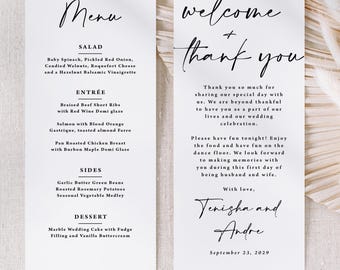 Menu
SALAD
Baby Spinach, Pickled Red Onion,
Candied Walnuts, Roquefort Cheese
and a Hazelnut Balsamic Vinaigrette
ENTRÉE
Braised Beef Short Ribs
with Red Wine Demi Glaze
Salmon with Blood Orange
Gastrique, toasted almond Farro
Pan Roasted Chicken Breast
with Burbon Maple Demi Glaze
SIDES
Garlic Butter Green Beans
Roasted Rosemary Potatoes
Seasonal Vegetable Medley
DESSERT
Marble Wedding Cake with Fudge
Filling and Vanilla Buttercream
welcome
+
thank you
Thank you so much for
sharing our special day with
us. We are beyond thankful
to have you as a part of our
lives and our wedding
celebration.
Please have fun tonight! Enjoy
the food and have fun on the
dance floor. We look forward
to making memories with
you during this first day of
being husband and wife.
With love,
Tenisha and
Andre
September 23, 2029